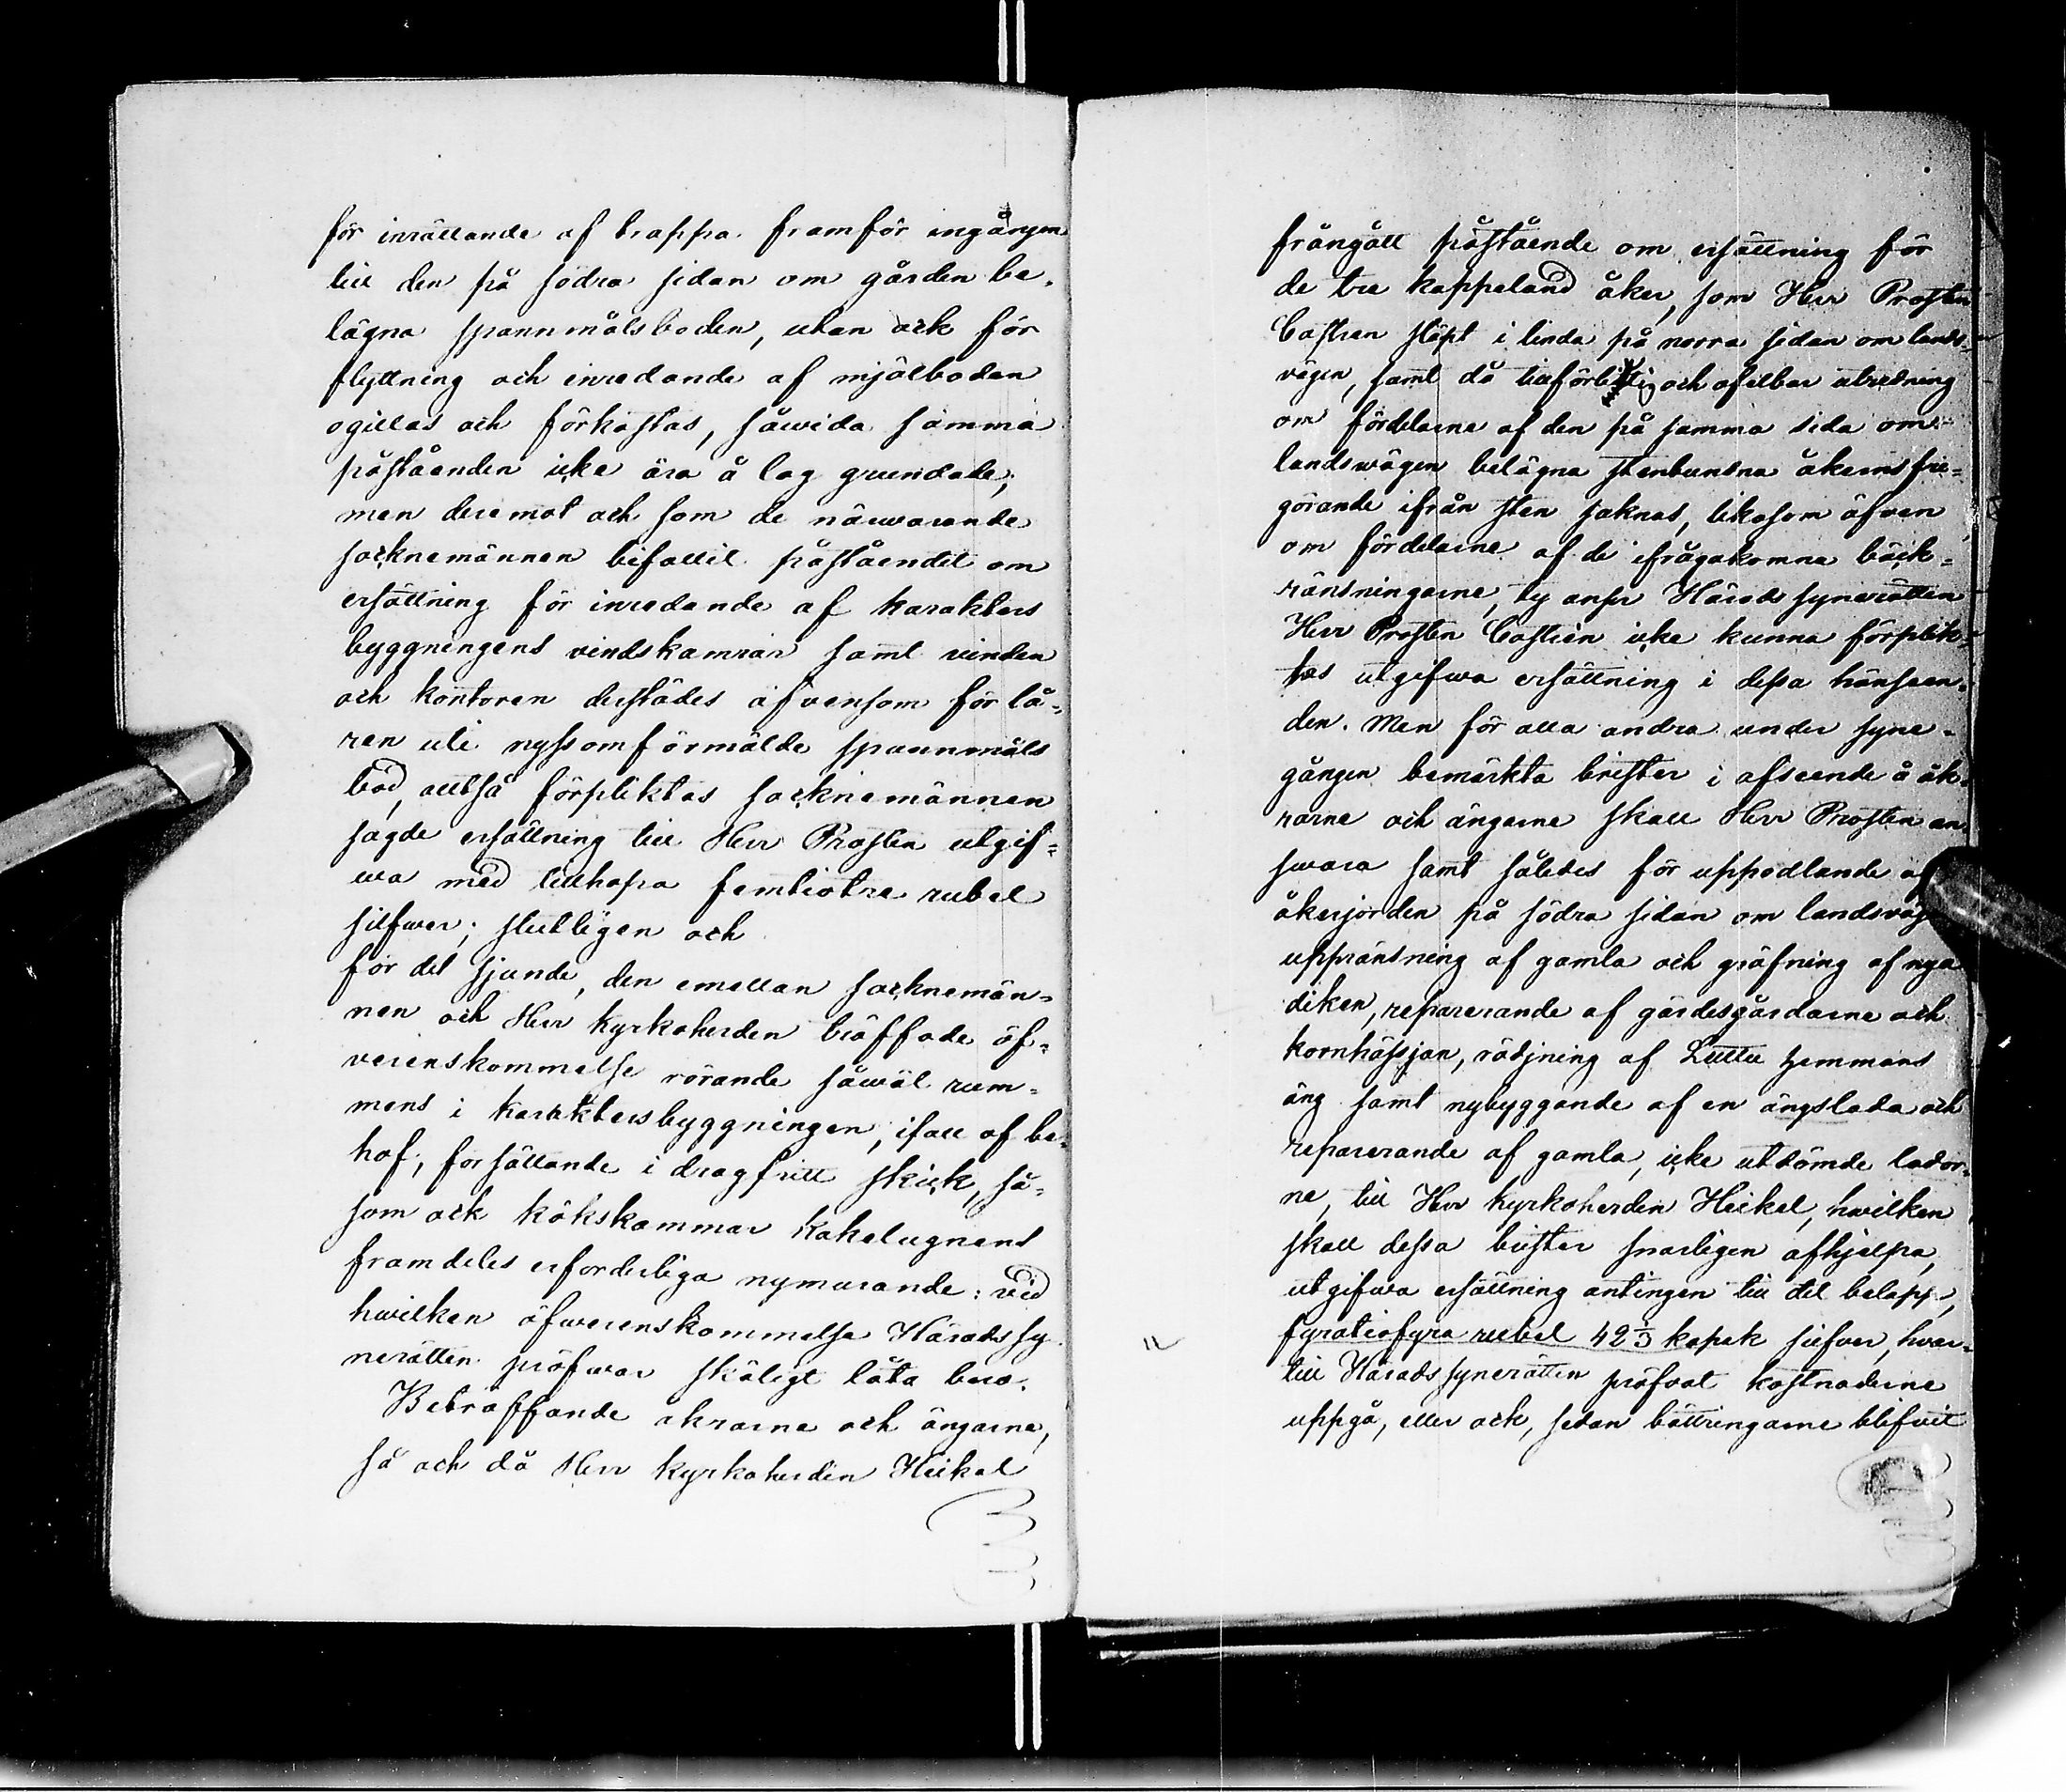 för inrättande af trappa framför ingången
till den på södra sidan om gården be-
lägna spannmålsboden, utan ock för
flyttning och inredande af mjölboden
ogillas och förkastas, såwida samma
påståenden icke ära å lag grundade;
men deremot och som de närwarande
socknemännen bifallit påståendet om
ersättning för inredande af karakters
byggningens vindskamrar samt vinden
och kontoren derstädes äfvensom för lå-
ren uti nyssomförmälde spannmåls
bod, alltså förpliktas socknemännen
sagde ersättning till Herr Prosten utgif-
wa med tillhopa femtiotre rubel
silfwer; slutligen och
för det sjunde, den emellan socknemän-
nen och Herr Kyrkoherden träffade öf-
verenskommelse rörande såwäl rum-
mens i karaktersbyggningen, ifall af be-
hof, försättande i dragfritt skick, så-
som ock kökskammar kakelugnens
framdeles erforderliga nymurande: vid
hwilken öfwerenskommelse Häradssy
nerätten pröfwar skäligt låta bero.
Beträffande åkrarne och ängarne,
så och då Herr Kyrkoherden Heikel
frångått påstående om ersättning för
de tre kappeland åker, som Herr Prosten
Castren släpt i linda på norra sidan om lands-
vägen, samt då tillförlitlig och ofelbar utredning
om fördelarne af den på samma sida om
landswägen belägna stenbundna åkerns fri-
görande ifrån sten saknas, likasom äfven
om fördelarne af de ifrågakomne bäck-
ränsningarne, ty anser Härads synerätten
Herr Prosten Castrén icke kunna förplik-
tas utgifwa ersättning i dessa hänseen-
den. Men för alla andra under syne-
gången bemärkta brister i afseende å åk-
rarne och ängarne skall Herr Prosten an
swara samt således för uppodlande af
åkerjorden på södra sidan om landsväg
uppränsning af gamla och gräfning af nya
diken, reparerande af gärdesgårdarne och
kornhässjan, rödjning af Luttu hemmans
äng samt nybyggande af en ängslada och
reparerande af gamla, icke utdömde lador-
ne, till Herr Kyrkoherden Heikel, hwilken
skall dessa brister snarligen afhjelpa,
utgifwa ersättning antingen till det belopp,
fyratiofyra rubel 42 2/3 kopek silfver, hvar-
till Häradssynerätten pröfvat kostnaderne
uppgå, eller ock, sedan bättringarne blifvit